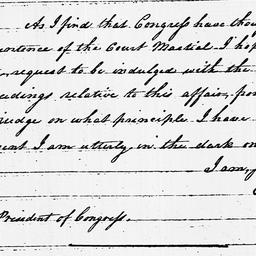 As I find that Congress have thou
portence of the Court Martial I hop
, request to be indulged with the
eedings relative to this affair, por
rudge on what principle I have
ent I am utterly in the dark on
I am,
President of Congress.